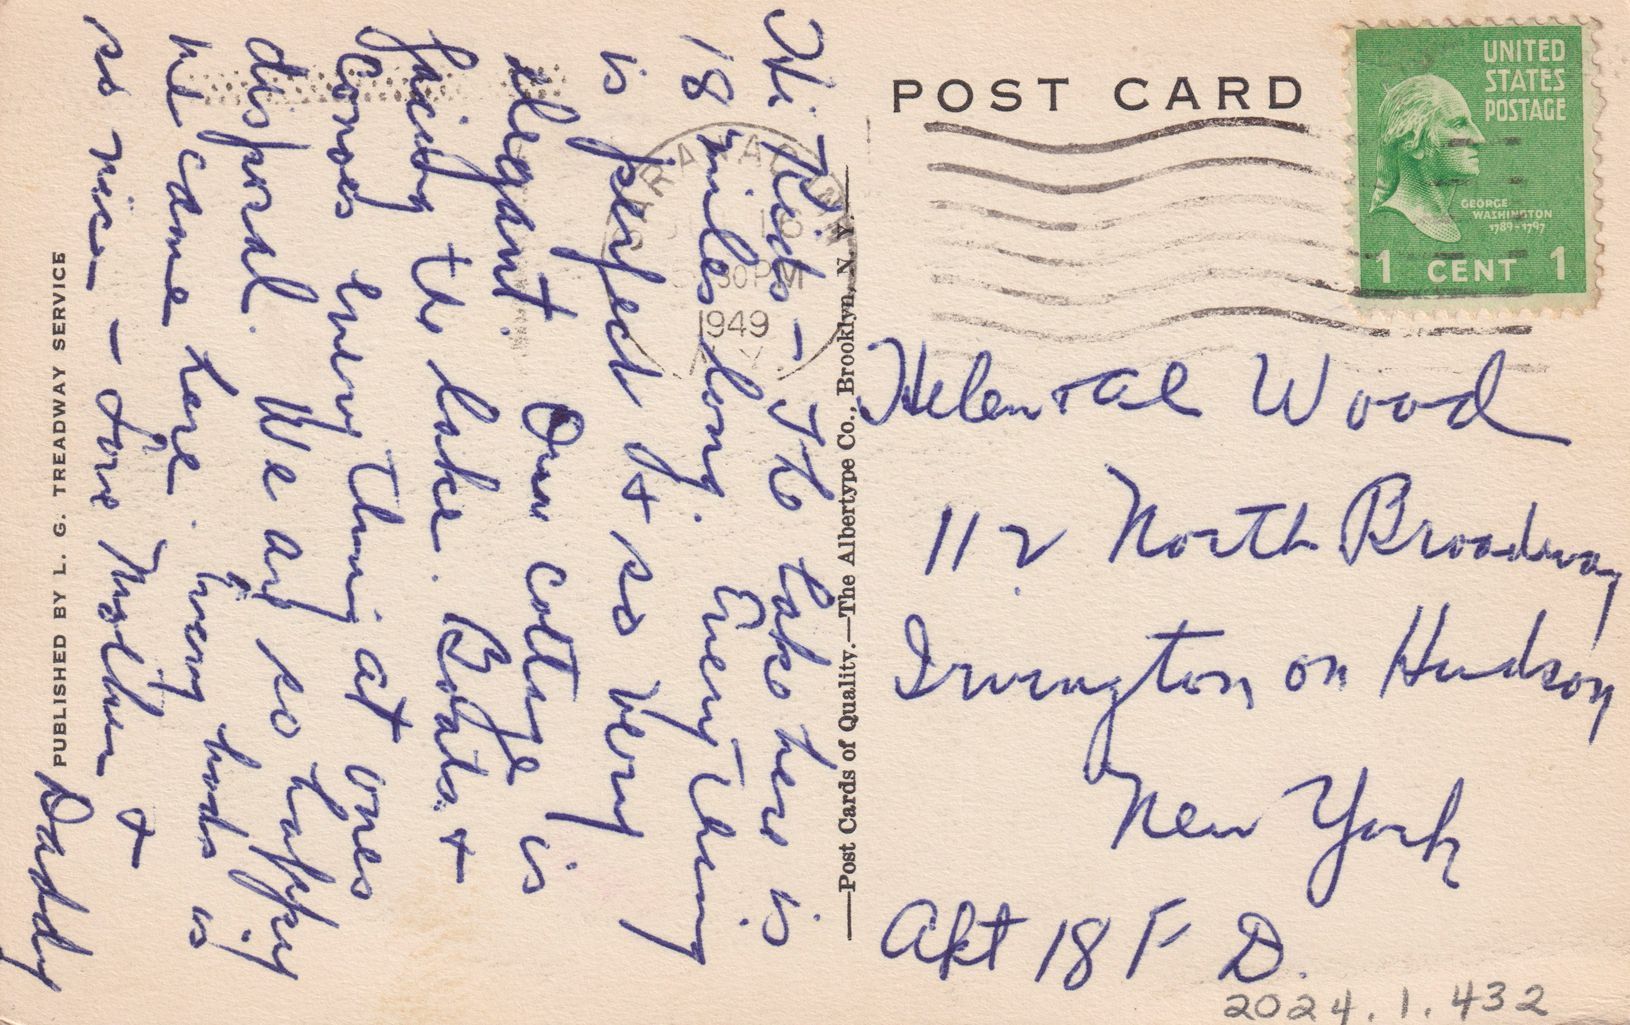 POST CARD
UNITED
STATES
POSTAGE
GEORGE
WASHINGTON
1789-1797
1 CENT 1
SARANAC INN
16
30 PM
1949
N.Y.
Hi Kids - The lake here is
18 miles long. Every thing
is perfect & so very
elegant. Our cottage is
facing the lake. Boats &
Canoes every thing at ones
disposal. We are so happy
we came here. Every body is
so nice - Love Mother &
Daddy
PUBLISHED BY L. G. TREADWAY SERVICE
—Post Cards of Quality.—The Albertype Co., Brooklyn, N. Y.—
Helen & Al Wood
112 North Broadway
Irvington on Hudson
New York
Apt 18 F D.
2024.1.432